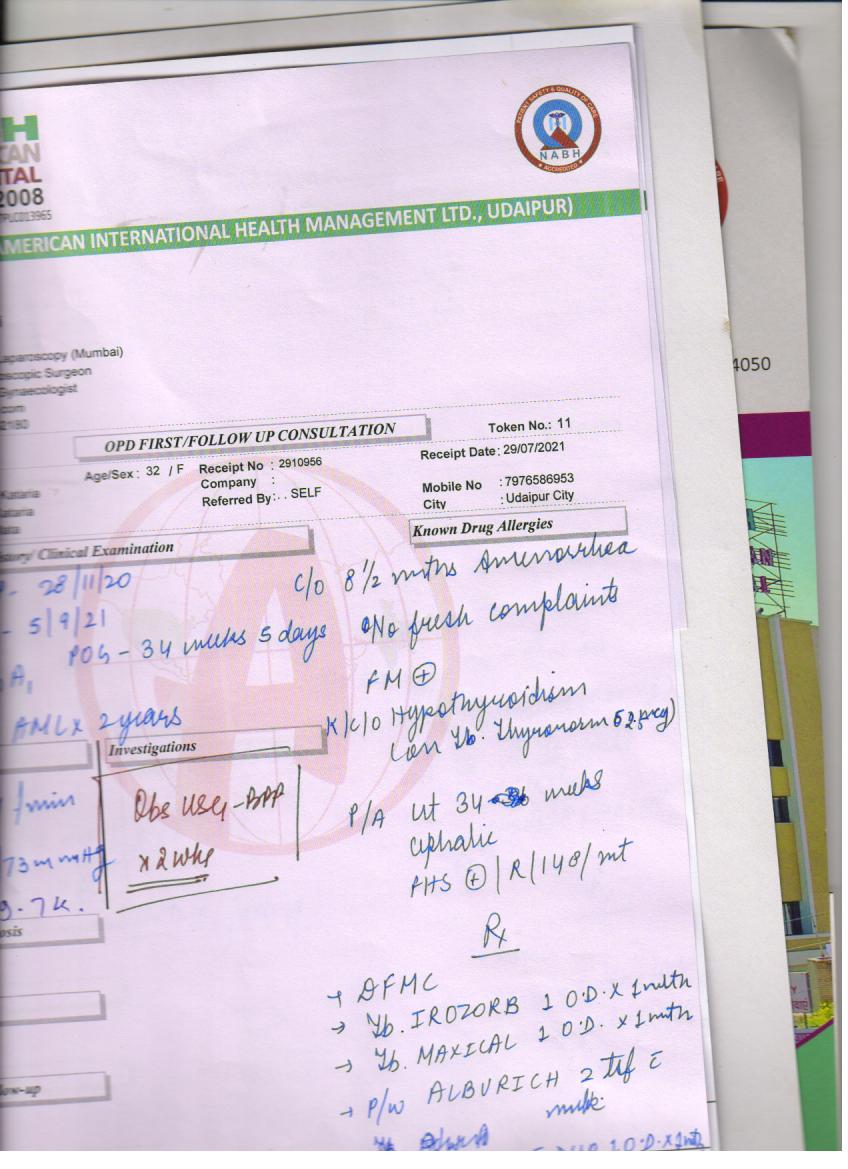 H
CAN
TAL
2008
PLC013965
PATIENT SAFETY & QUALITY OF CARE
NABH
ACCREDITED
AMERICAN INTERNATIONAL HEALTH MANAGEMENT LTD., UDAIPUR)
4050
Laparoscopy (Mumbai)
oscopic Surgeon
Gynaecologist
com
OPD FIRST/FOLLOW UP CONSULTATION
Token No.: 11
Age/Sex: 32 / F
Receipt No : 2910956
Receipt Date: 29/07/2021
Company :
Mobile No : 7976586953
Referred By: . . SELF
City : Udaipur City
Kataria
Known Drug Allergies
istory/ Clinical Examination
- 28/11/20
C/O 8 1/2 mnths Amenorrhea
- 5/9/21
POG - 34 weeks 5 days
No fresh complaints
A1
FM ⊕
AML x 2 years
K/C/O Hypothyroidism
Investigations
(on Tb. Thyronorm
/min
Obs USG - BPP
P/A Ut 34 weeks
73 mmHg
x 2 wks
cephalic
9.7 K.
FHS ⊕ / R / 148 / mt
osis
Rx
→ DFMC
→ Tb. IROZORB 1 O.D. x 1 mnth
→ Tb. MAXICAL 1 O.D. x 1 mnth
→ P/w ALBURICH 2 tsf c̄
milk
ow-up
1 O.D. x 1 mnth